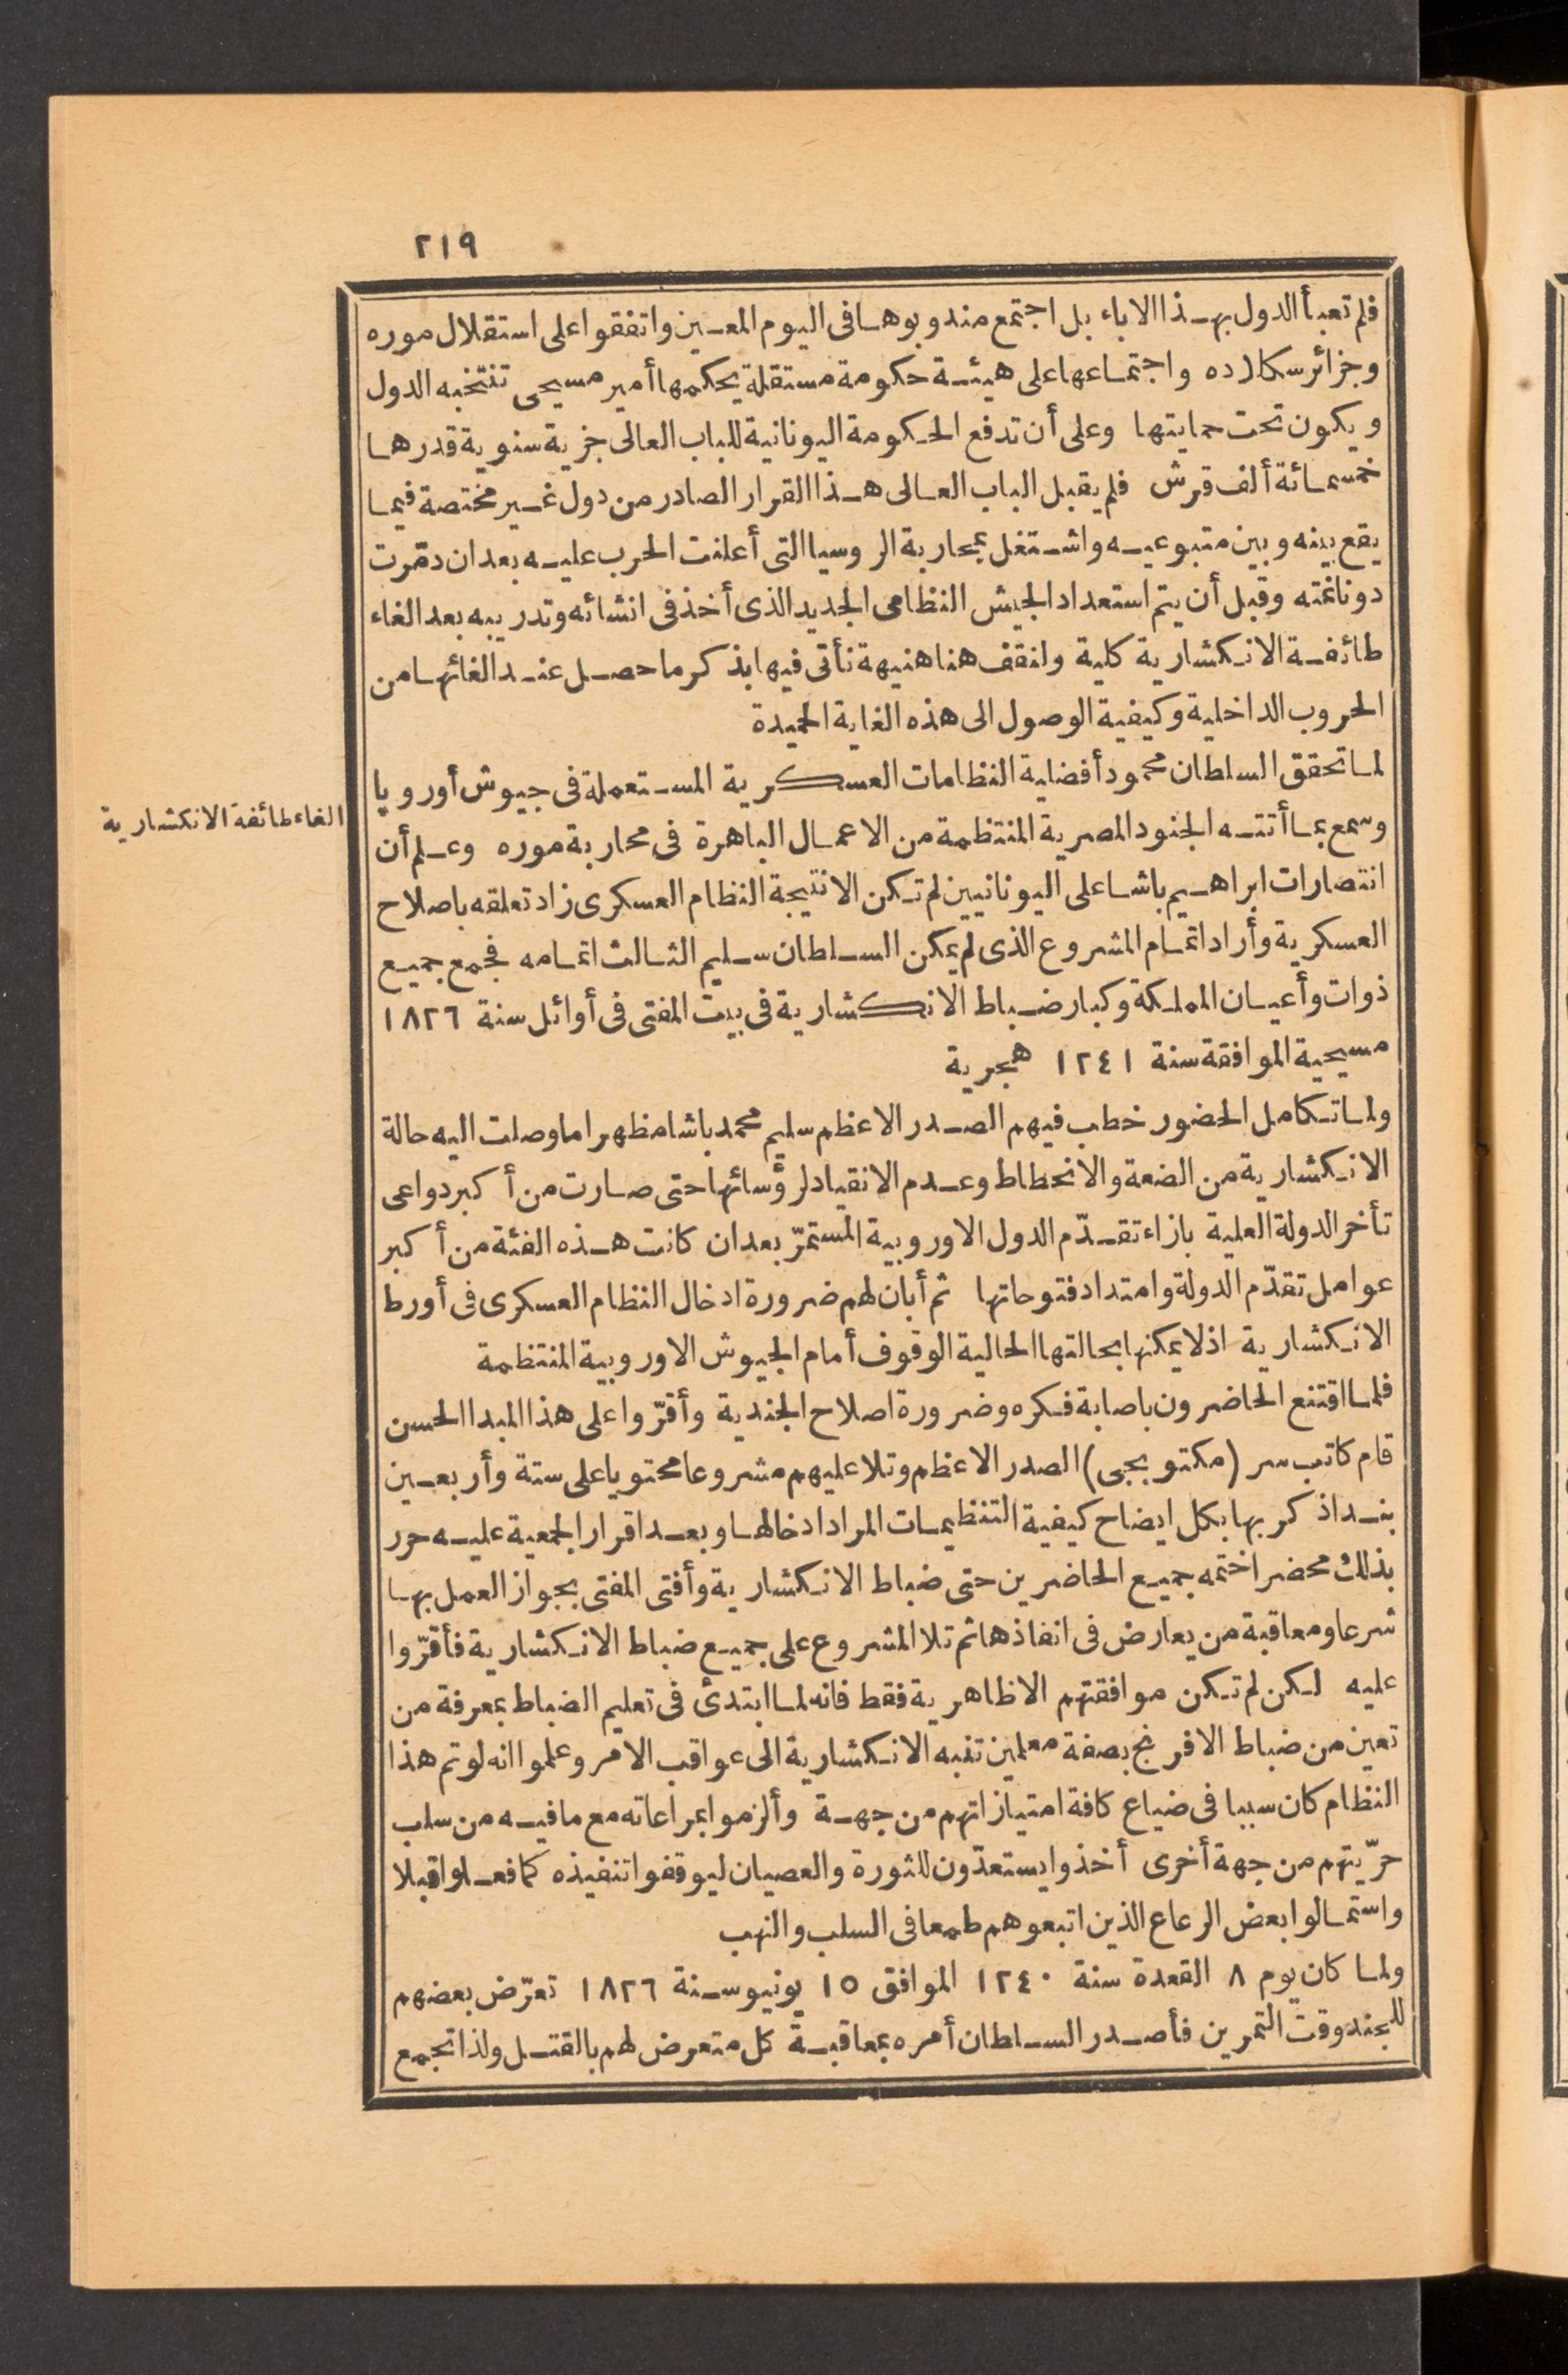 ٢١٩
فلم تعبأ الدول بهذا الاباء بل اجتمع مندوبوها فى اليوم المعين واتفقوا على استقلال موره
وجزائر سكلاده واجتماعها على هيئة حكومة مستقلة يحكمها أمير مسيحى تنتخبه الدول
ويكون تحت حمايتها وعلى أن تدفع الحكومة اليونانية للباب العالى جزية سنوية قدرها
خمسمائة ألف قرش فلم يقبل الباب العالى هذا القرار الصادر من دول غير مختصة فيما
يقع بينه وبين متبوعيه واشتغل بمحاربة الروسيا التى أعلنت الحرب عليه بعد ان دمّرت
دونانمته وقبل أن يتم استعداد الجيش النظامى الجديد الذى أخذ فى انشائه وتدريبه بعد الغاء
طائفة الانكشارية كلية ولنقف هنا هنيهة نأتى فيها بذكر ما حصل عند الغائها من
الحروب الداخلية وكيفية الوصول الى هذه الغاية الحميدة
الغاء طائفة الانكشارية
لما تحقق السلطان محمود أفضلية النظامات العسكرية المستعملة فى جيوش أوروپا
وسمع بما أتته الجنود المصرية المنتظمة من الاعمال الباهرة فى محاربة موره وعلم أن
انتصارات ابراهيم باشا على اليونانيين لم تكن الا نتيجة النظام العسكرى زاد تعلقه باصلاح
العسكرية وأراد اتمام المشروع الذى لم يمكن السلطان سليم الثالث اتمامه فجمع جميع
ذوات وأعيان المملكة وكبار ضباط الانكشارية فى بيت المفتى فى أوائل سنة ١٨٢٦
مسيحية الموافقة سنة ١٢٤١ هجرية
ولما تكامل الحضور خطب فيهم الصدر الاعظم سليم محمد باشا مظهرا ما وصلت اليه حالة
الانكشارية من الضعة والانحطاط وعدم الانقياد لرؤسائها حتى صارت من أكبر دواعى
تأخر الدولة العلية بازاء تقدّم الدول الاوروبية المستمرّ بعد ان كانت هذه الفئة من أكبر
عوامل تقدّم الدولة وامتداد فتوحاتها ثم أبان لهم ضرورة ادخال النظام العسكرى فى أورط
الانكشارية اذ لا يمكنها بحالتها الحالية الوقوف أمام الجيوش الاوروبية المنتظمة
فلما اقتنع الحاضرون باصابة فكره وضرورة اصلاح الجندية وأقرّوا على هذا المبدا الحسن
قام كاتب سر (مكتوبجى) الصدر الاعظم وتلا عليهم مشروعا محتويا على ستة وأربعين
بندا ذكر بها بكل ايضاح كيفية التنظيمات المراد ادخالها وبعد اقرار الجمعية عليه حرر
بذلك محضرا ختمه جميع الحاضرين حتى ضباط الانكشارية وأفتى المفتى بجواز العمل بها
شرعا ومعاقبة من يعارض فى انفاذها ثم تلا المشروع على جميع ضباط الانكشارية فأقرّوا
عليه لكن لم تكن موافقتهم الا ظاهرية فقط فانه لما ابتدئ فى تعليم الضباط بمعرفة من
تعين من ضباط الافرنج بصفة معلمين تنبه الانكشارية الى عواقب الامر وعلموا انه لو تم هذا
النظام كان سببا فى ضياع كافة امتيازاتهم من جهة وألزموا بمراعاته مع ما فيه من سلب
حرّيتهم من جهة أخرى أخذوا يستعدّون للثورة والعصيان ليوقفوا تنفيذه كما فعلوا قبلا
واستمالوا بعض الرعاع الذين اتبعوهم طمعا فى السلب والنهب
ولما كان يوم ٨ القعدة سنة ١٢٤٠ الموافق ١٥ يونيو سنة ١٨٢٦ تعرّض بعضهم
للجند وقت التمرين فأصدر السلطان أمره بمعاقبة كل متعرض لهم بالقتل ولذا تجمع